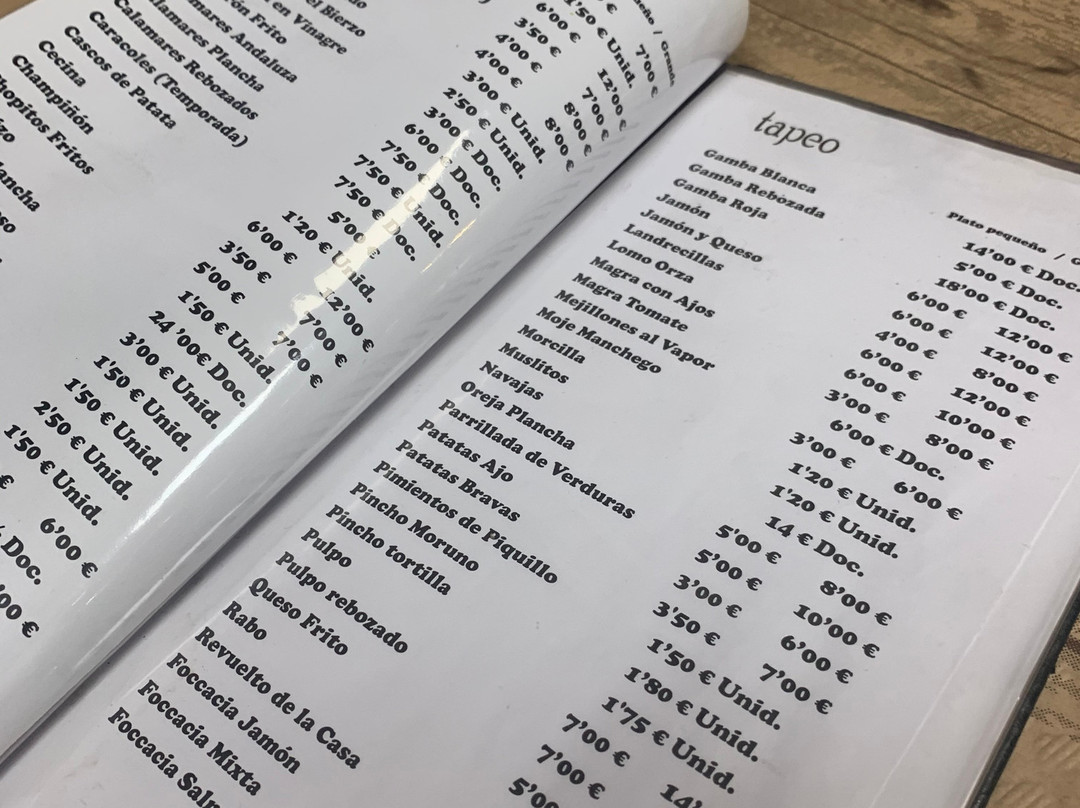 el Bierzo
en Vinagre
Frito
Andaluza
Plancha
Calamares Rebozados
Caracoles (Temporada)
Cascos de Patata
Cecina
Champiñón
Chopitos Fritos
/ Grande
7'00 €
1'50 € Unid.
6'00 € 12'00 €
3'50 € 7'00 €
4'00 € 8'00 €
4'00 € 8'00 €
3'00 € Unid.
2'50 € Unid.
3'00 € Doc.
6'00 € Doc.
7'50 € Doc.
7'50 € Unid.
7'50 € Doc.
5'00 €
1'20 € Unid.
6'00 € 12'00 €
3'50 € 7'00 €
5'00 € 7'00 €
1'50 € Unid.
24 '00€ Doc.
3'00 € Unid.
1'50 € Unid.
1'50 € Unid.
2'50 € Unid.
1'50 € Unid.
€ 6'00 €
Doc.
'00 €
tapeo
Plato pequeño /
Gamba Blanca 14'00 € Doc.
Gamba Rebozada 5'00 € Doc.
Gamba Roja 18'00 € Doc.
Jamón 6'00 € 12'00 €
Jamón y Queso 6'00 € 12'00 €
Landrecillas 4'00 € 8'00 €
Lomo Orza 6'00 € 12'00 €
Magra con Ajos 6'00 € 10'00 €
Magra Tomate 3'00 € 8'00 €
Mejillones al Vapor 6'00 € Doc.
Moje Manchego 3'00 € 6'00 €
Morcilla 1'20 € Unid.
Muslitos 1'20 € Unid.
Navajas 14 € Doc.
Oreja Plancha 5'00 € 8'00 €
Parrillada de Verduras 5'00 € 10'00 €
Patatas Ajo 3'00 € 6'00 €
Patatas Bravas 3'50 € 7'00 €
Pimientos de Piquillo 1'50 € Unid.
Pincho Moruno 1'80 € Unid.
Pincho tortilla 1'75 € Unid.
Pulpo 7'00 € 14'
Pulpo rebozado 7'00 €
Queso Frito 5'00
Rabo
Revuelto de la Casa
Foccacia Jamón
Foccacia Mixta
Foccacia